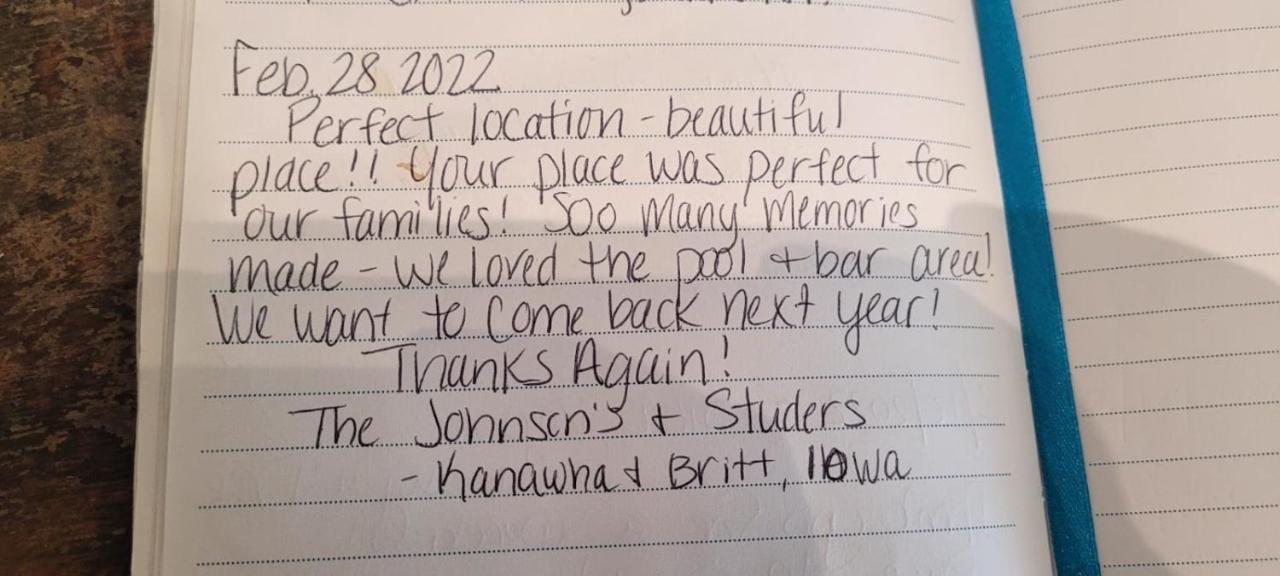 Feb. 28 2022
Perfect location - beautiful
place!! Your place was perfect for
our families! Soo many memories
made - we loved the pool + bar area!
We want to come back next year!
Thanks Again!
The Johnson's + Studers
- Kanawha + Britt, IOwa